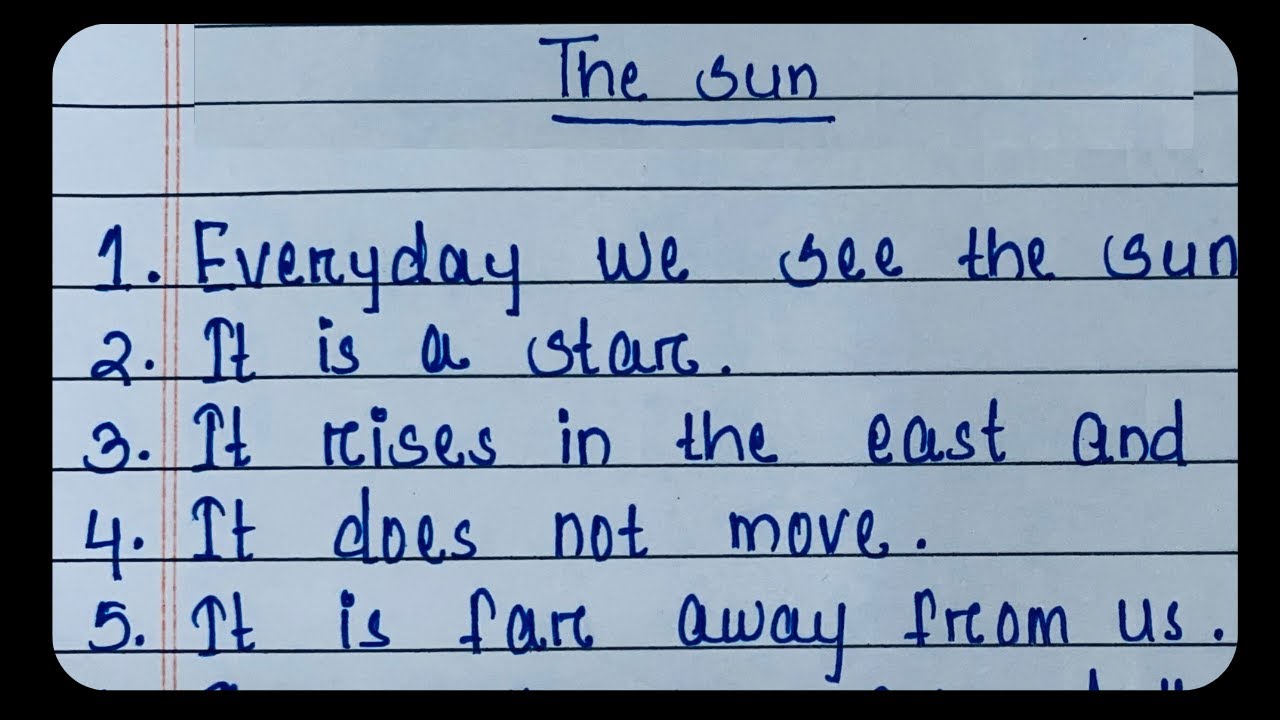 The sun
1. Everyday we see the sun
2. It is a star.
3. It rises in the east and
4. It does not move.
5. It is far away from us.